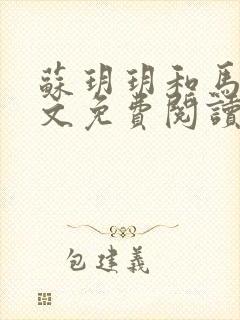 蘇玥玥和馬
文免費閱讀
包建義